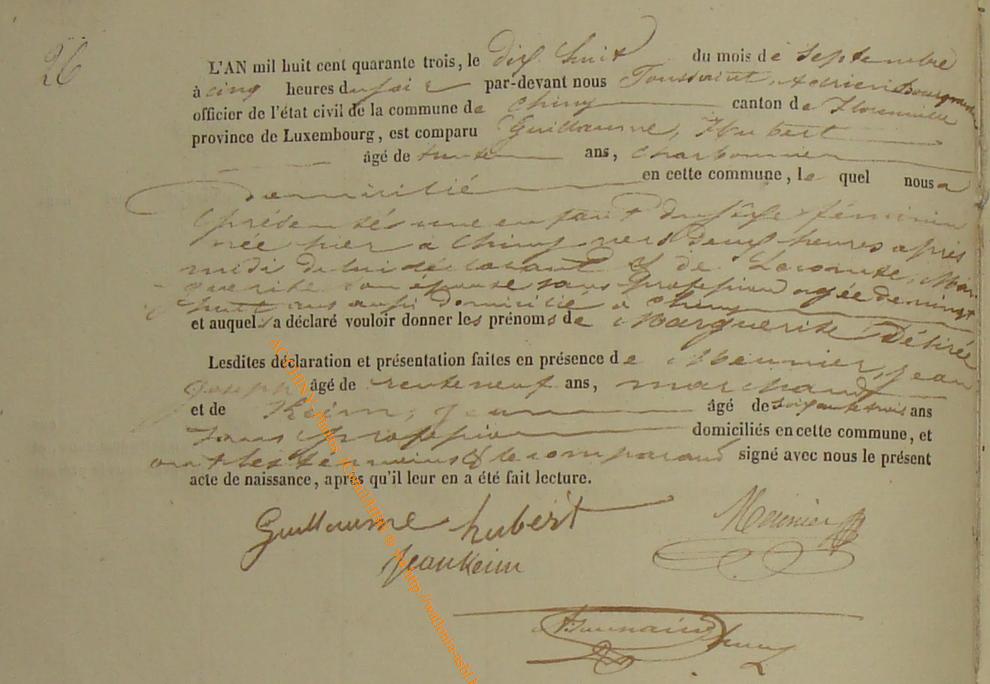 26
L'AN mil huit cent quarante trois, le dix huit du mois de septembre
à cinq heures du soir par-devant nous Toussaint, Adrien
officier de l'état civil de la commune de Chiny canton de Florenville
province de Luxembourg, est comparu Guillaume, Hubert
âgé de trente ans, charbonnier
Domicilié en cette commune, le quel nous a
présentés une enfant du sexe féminin
née hier à Chiny vers deux heures après
midi de lui déclarant & de Lecomte, Mar
guerite son épouse sans profession agée de vingt
huit ans aussi domicilié à Chiny
et auquels a déclaré vouloir donner les prénoms de Marguerite Désirée
Lesdites déclaration et présentation faites en présence de Meunier, Jean
Joseph âgé de trente neuf ans, marchand
et de Keim, Jean âgé de soixante trois ans
sans profession domiciliés en cette commune, et
ont les témoins & le comparant signé avec nous le présent
acte de naissance, après qu'il leur en a été fait lecture.
Guillaume hubert
Meunier
Jean Keim